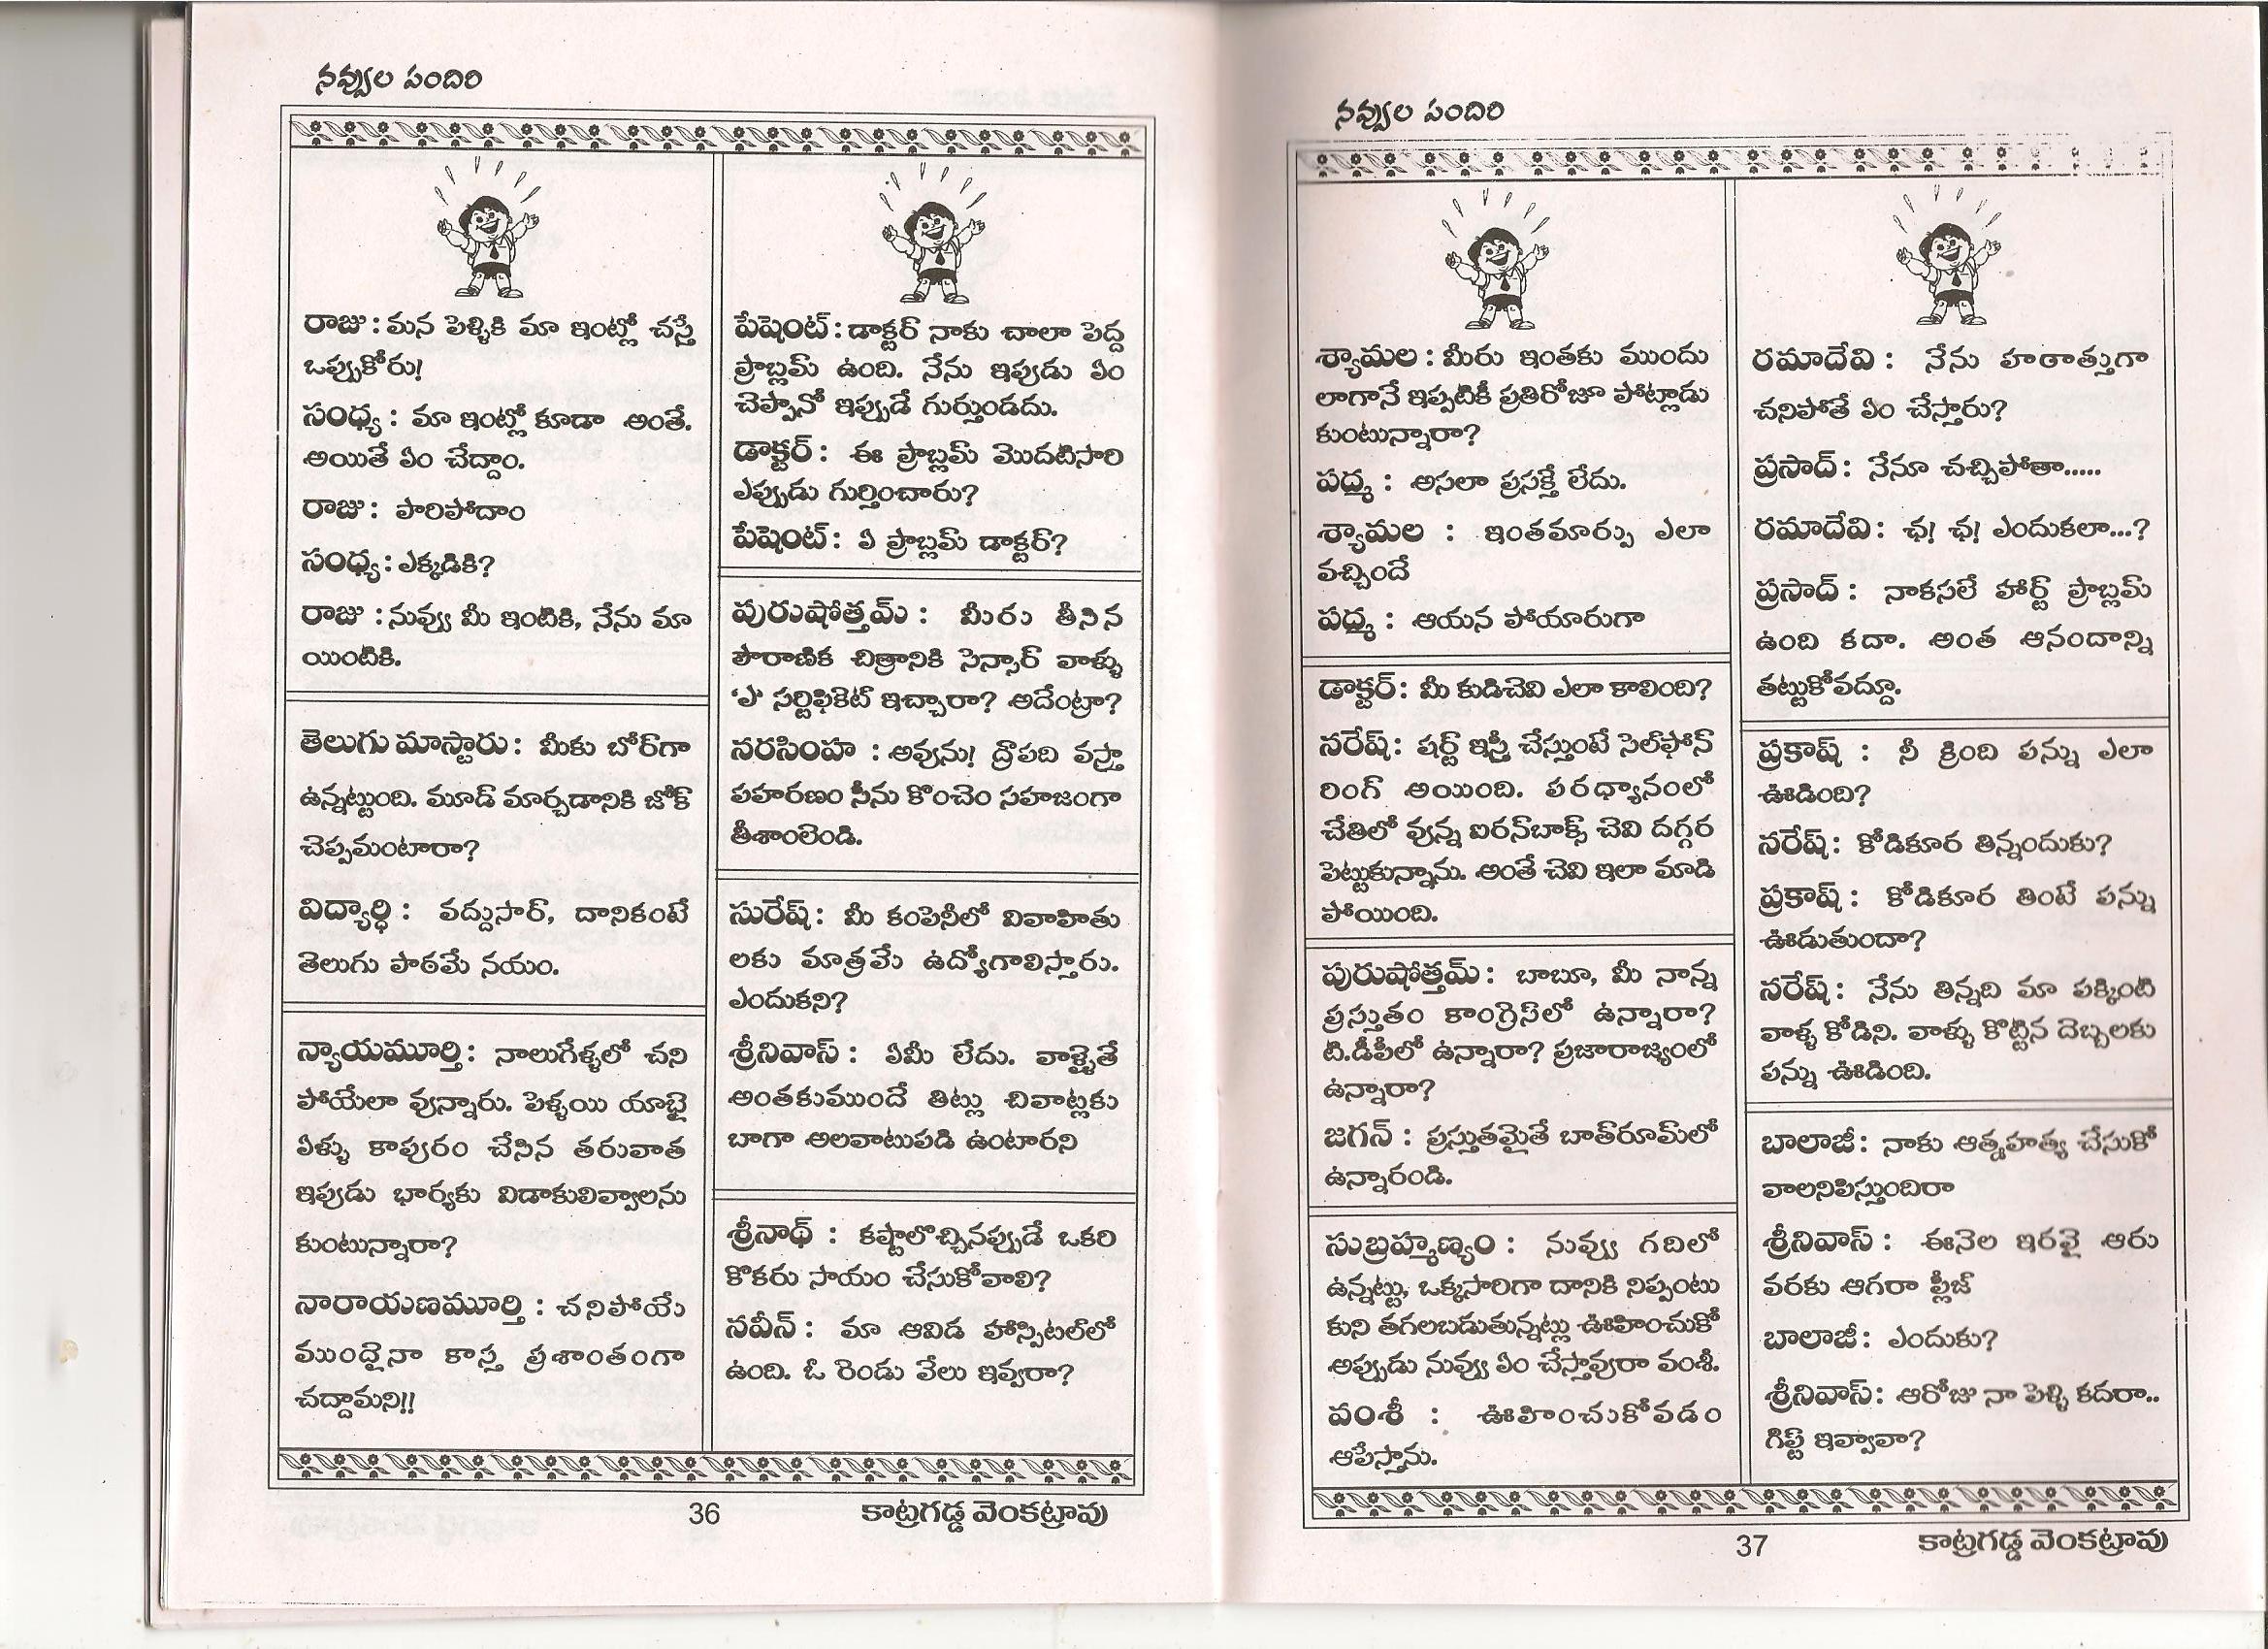 నవ్వుల పందిరి
రాజు : మన పెళ్ళికి మా ఇంట్లో చస్తే
ఒప్పుకోరు!
సంధ్య : మా ఇంట్లో కూడా అంతే.
అయితే ఏం చేద్దాం.
రాజు : పారిపోదాం
సంధ్య : ఎక్కడికి?
రాజు : నువ్వు మీ ఇంటికి, నేను మా
యింటికి.
తెలుగు మాస్టారు : మీకు బోర్‌గా
ఉన్నట్టుంది. మూడ్ మార్చడానికి జోక్
చెప్పమంటారా?
విద్యార్థి : వద్దుసార్, దానికంటే
తెలుగు పాఠమే నయం.
న్యాయమూర్తి : నాలుగేళ్ళలో చని
పోయేలా వున్నారు. పెళ్ళయి యాభై
ఏళ్ళు కాపురం చేసిన తరువాత
ఇపుడు భార్యకు విడాకులివ్వాలను
కుంటున్నారా?
నారాయణమూర్తి : చనిపోయే
ముందైనా కాస్త ప్రశాంతంగా
చద్దామని!!
పేషెంట్ : డాక్టర్ నాకు చాలా పెద్ద
ప్రాబ్లమ్ ఉంది. నేను ఇపుడు ఏం
చెప్పానో ఇప్పుడే గుర్తుండదు.
డాక్టర్ : ఈ ప్రాబ్లమ్ మొదటిసారి
ఎప్పుడు గుర్తించారు?
పేషెంట్ : ఏ ప్రాబ్లమ్ డాక్టర్?
పురుషోత్తమ్ : మీరు తీసిన
పౌరాణిక చిత్రానికి సెన్సార్ వాళ్ళు
'ఎ' సర్టిఫికెట్ ఇచ్చారా? అదేంట్రా?
నరసింహ : అవును! ద్రౌపది వస్త్రా
పహరణం సీను కొంచెం సహజంగా
తీశాంలెండి.
సురేష్ : మీ కంపెనీలో వివాహితు
లకు మాత్రమే ఉద్యోగాలిస్తారు.
ఎందుకని?
శ్రీనివాస్ : ఏమీ లేదు. వాళ్ళైతే
అంతకుముందే తిట్లు చివాట్లకు
బాగా అలవాటుపడి ఉంటారని
శ్రీనాథ్ : కష్టాలొచ్చినప్పుడే ఒకరి
కొకరు సాయం చేసుకోవాలి?
నవీన్ : మా ఆవిడ హాస్పిటల్‌లో
ఉంది. ఓ రెండు వేలు ఇవ్వరా?
36
కాట్రగడ్డ వెంకట్రావు
నవ్వుల పందిరి
శ్యామల : మీరు ఇంతకు ముందు
లాగానే ఇప్పటికీ ప్రతిరోజూ పోట్లాడు
కుంటున్నారా?
పద్మ : అసలా ప్రసక్తే లేదు.
శ్యామల : ఇంతమార్పు ఎలా
వచ్చిందే
పద్మ : ఆయన పోయారుగా
డాక్టర్ : మీ కుడిచెవి ఎలా కాలింది?
నరేష్ : షర్ట్ ఇస్త్రీ చేస్తుంటే సెల్‌ఫోన్
రింగ్ అయింది. పరధ్యానంలో
చేతిలో వున్న ఐరన్‌బాక్స్ చెవి దగ్గర
పెట్టుకున్నాను. అంతే చెవి ఇలా మాడి
పోయింది.
పురుషోత్తమ్ : బాబూ, మీ నాన్న
ప్రస్తుతం కాంగ్రెస్‌లో ఉన్నారా?
టి.డీపీలో ఉన్నారా? ప్రజారాజ్యంలో
ఉన్నారా?
జగన్ : ప్రస్తుతమైతే బాత్‌రూమ్‌లో
ఉన్నారండి.
సుబ్రహ్మణ్యం : నువ్వు గదిలో
ఉన్నట్టు, ఒక్కసారిగా దానికి నిప్పంటు
కుని తగలబడుతున్నట్లు ఊహించుకో
అప్పుడు నువ్వు ఏం చేస్తావురా వంశీ.
వంశీ : ఊహించుకోవడం
ఆపేస్తాను.
రమాదేవి : నేను హఠాత్తుగా
చనిపోతే ఏం చేస్తారు?
ప్రసాద్ : నేనూ చచ్చిపోతా.....
రమాదేవి : ఛ! ఛ! ఎందుకలా...?
ప్రసాద్ : నాకసలే హార్ట్ ప్రాబ్లమ్
ఉంది కదా. అంత ఆనందాన్ని
తట్టుకోవద్దూ.
ప్రకాష్ : నీ క్రింది పన్ను ఎలా
ఊడింది?
నరేష్ : కోడికూర తిన్నందుకు?
ప్రకాష్ : కోడికూర తింటే పన్ను
ఊడుతుందా?
నరేష్ : నేను తిన్నది మా పక్కింటి
వాళ్ళ కోడిని. వాళ్ళు కొట్టిన దెబ్బలకు
పన్ను ఊడింది.
బాలాజీ : నాకు ఆత్మహత్య చేసుకో
వాలనిపిస్తుందిరా
శ్రీనివాస్ : ఈనెల ఇరవై ఆరు
వరకు ఆగరా ప్లీజ్
బాలాజీ : ఎందుకు?
శ్రీనివాస్ : ఆరోజు నా పెళ్ళి కదరా..
గిఫ్ట్ ఇవ్వావా?
37
కాట్రగడ్డ వెంకట్రావు